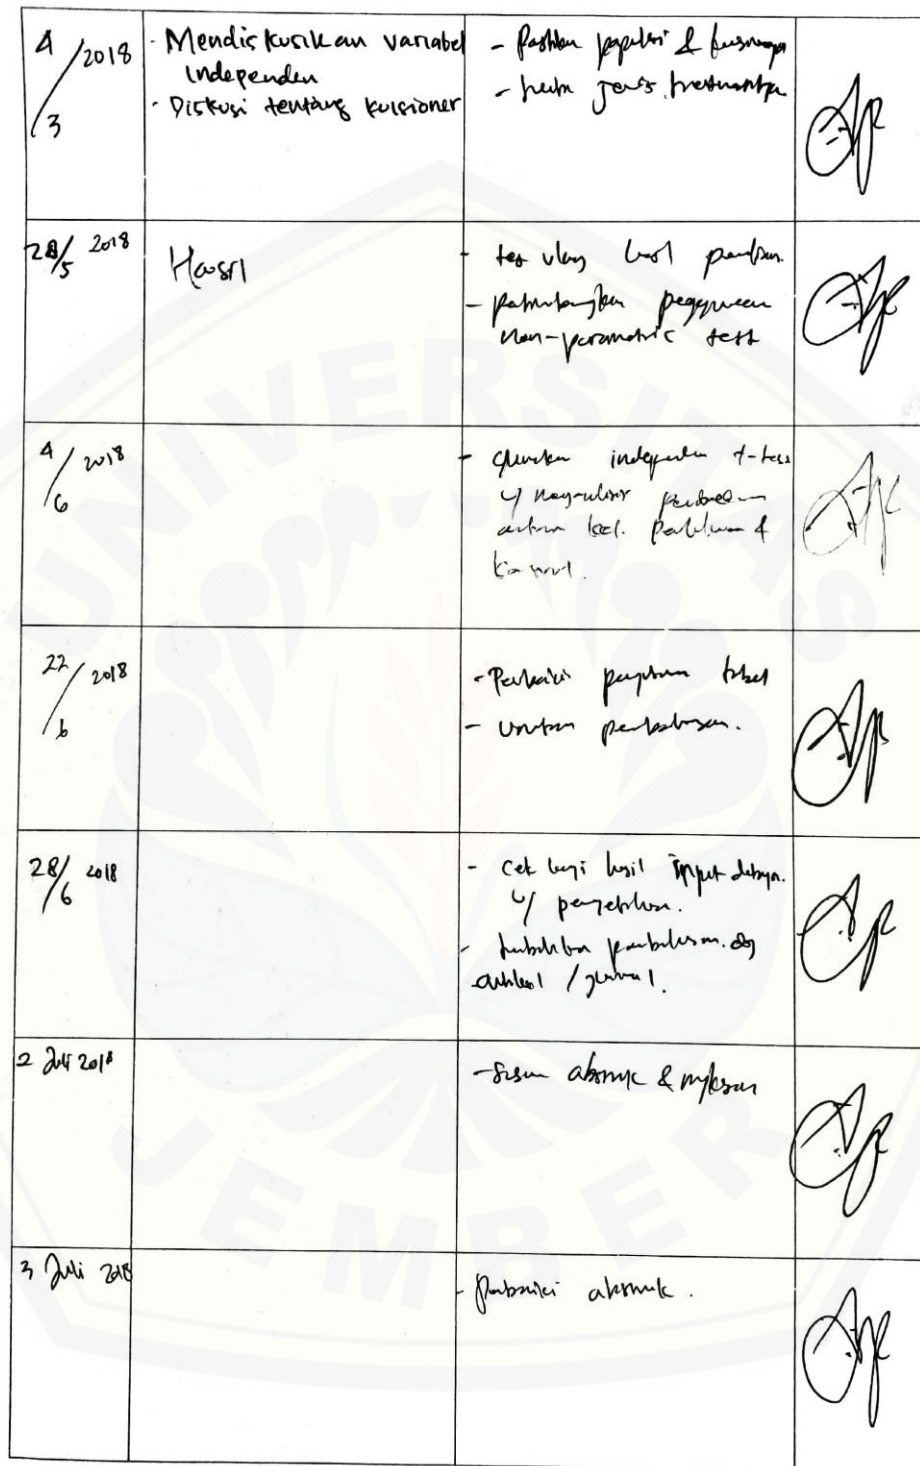 4/3 2018
- Mendiskusikan variabel
independen
- Diskusi tentang kuisioner
- Pastikan populasi &
- jenis treatmentnya
28/5 2018
Hasil
- tes ulang hasil
- pertimbangkan penggunaan
non-parametric test
4/6 2018
- gunakan independen t-test
u/ menganalisis perbedaan
antara kel. perlakuan &
kontrol.
22/6 2018
- Perbaiki penyajian tabel
- urutan pembahasan.
28/6 2018
- Cek lagi hasil input datanya.
u/
- pembahasan. dg
artikel / jurnal.
2 Juli 2018
- Susun abstrak & ringkasan
3 Juli 2018
- Perbaiki abstrak.
UNIVERSITAS
JEMBER